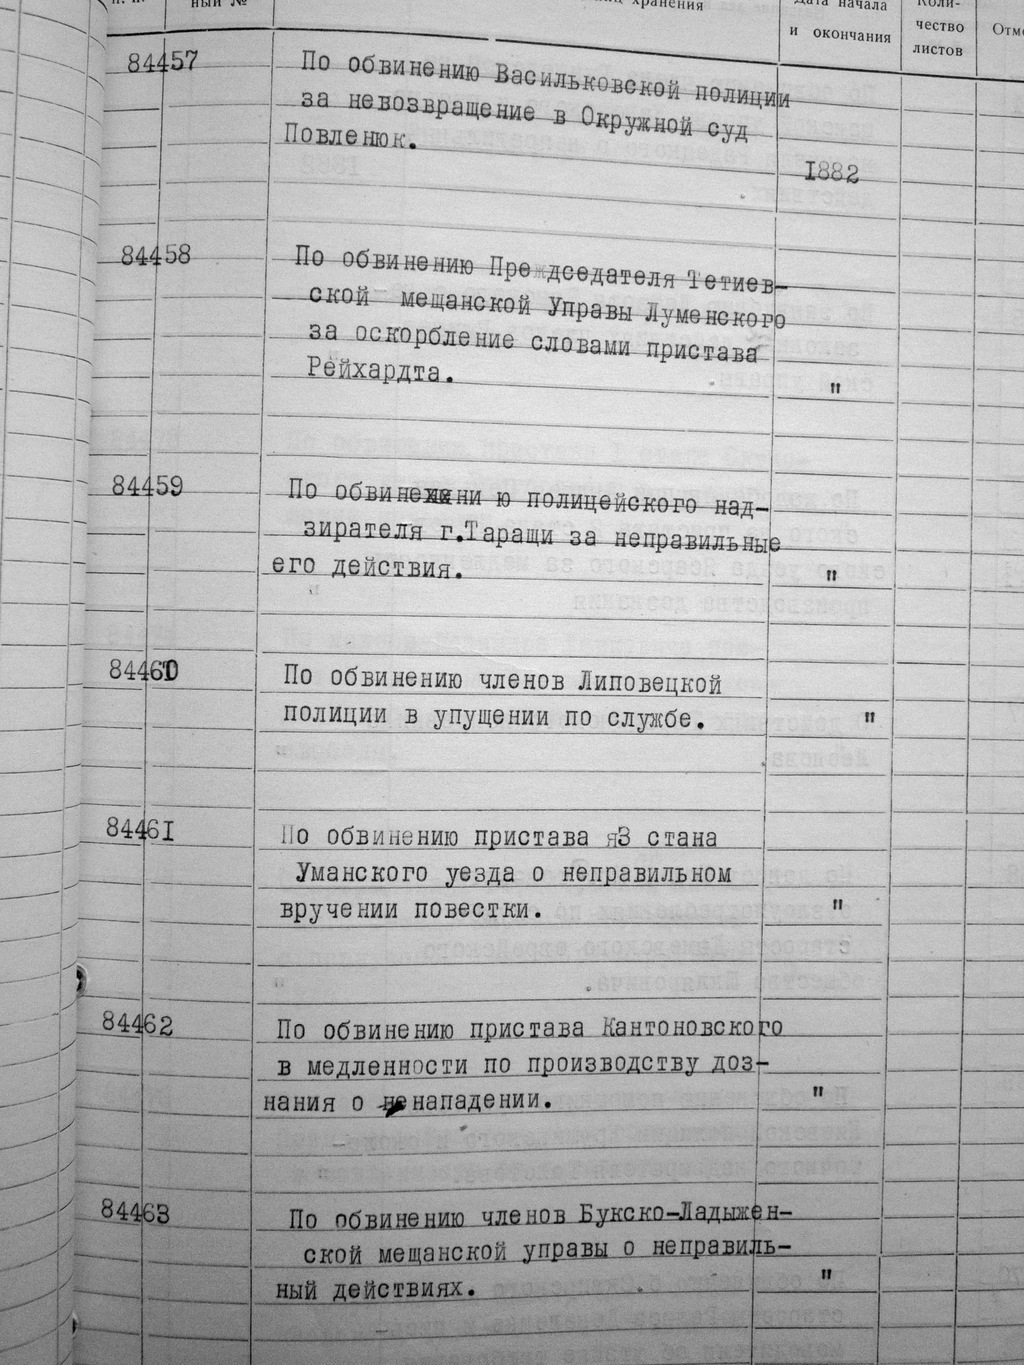 ный №
хранения
Дата начала
и окончания
Коли-
чество
листов
84457
По обвинению Васильковской полиции
за невозвращение в Окружной суд
Повленюк.
1882
84458
По обвинению Председателя Тетиев-
ской мещанской Управы Луменского
за оскорбление словами пристава
Рейхардта.
"
84459
По обвинени ю полицейского над-
зирателя г.Таращи за неправильные
его действия.
"
84460
По обвинению членов Липовецкой
полиции в упущении по службе.
"
84461
По обвинению пристава 3 стана
Уманского уезда о неправильном
вручении повестки.
"
84462
По обвинению пристава Кантоновского
в медленности по производству доз-
нания о нападении.
"
84463
По обвинению членов Букско-Ладыжен-
ской мещанской управы о неправиль-
ный действиях.
"